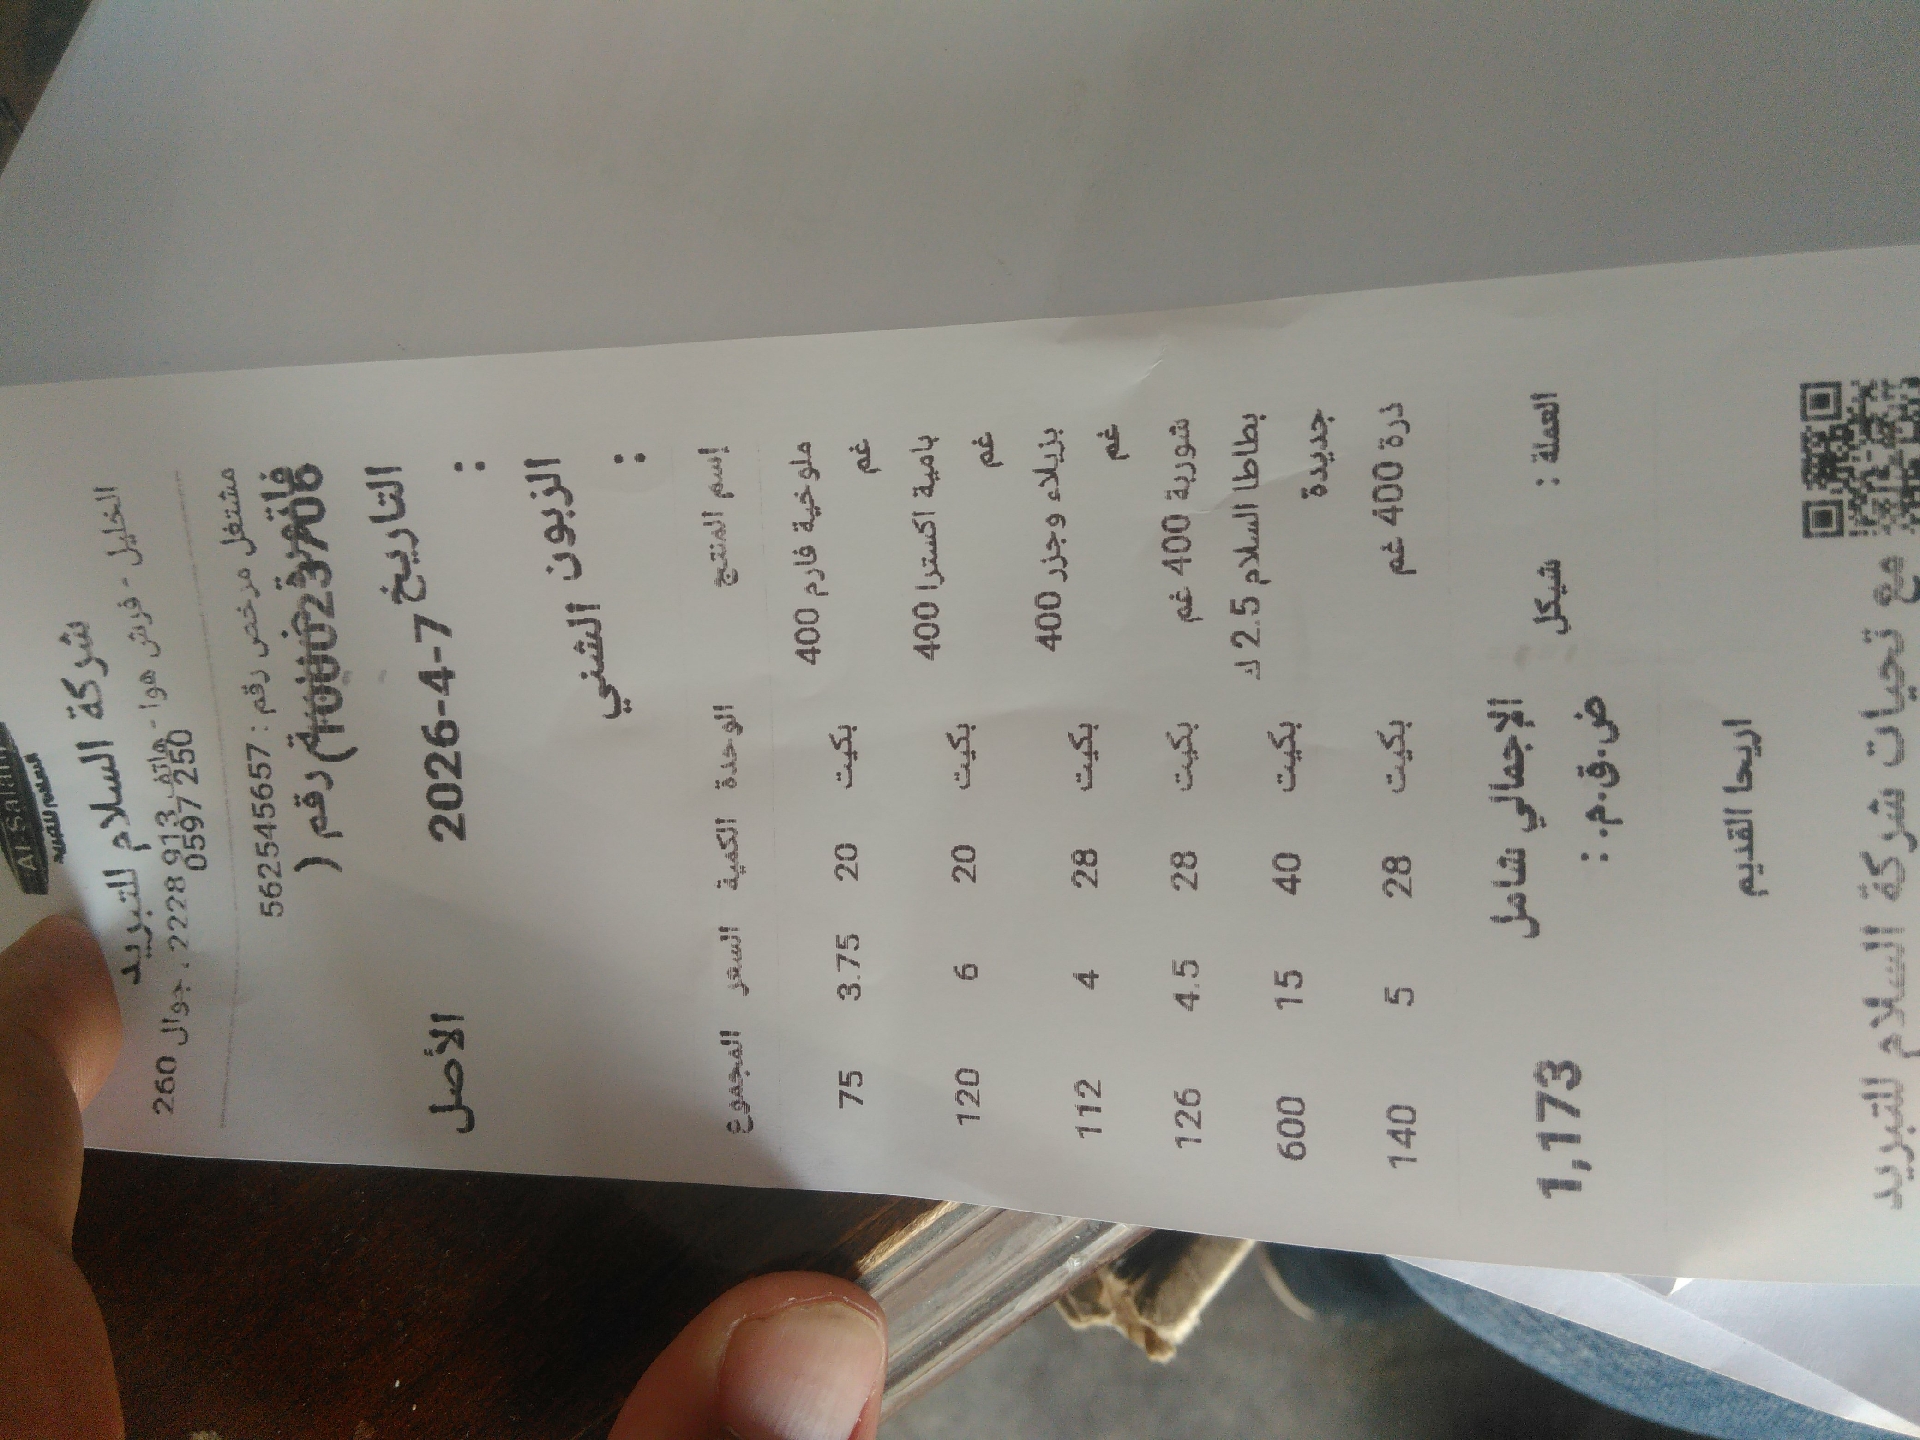 Al-Salam
شركة السلام للتبريد
الخليل - فرش هوا - هاتف 913 2228 ، جوال 260
0597 250
مشتغل مرخص رقم : 562545657
التاريخ 2026-4-7
:
الأصل
الزبون الشني
:
إسم المنتج الوحدة الكمية السعر المجموع
ملوخية فارم 400 بكيت 20 3.75 75
غم
بامية اكسترا 400 بكيت 20 6 120
غم
بزيلاء وجزر 400 بكيت 28 4 112
غم
شوربة 400 غم بكيت 28 4.5 126
بطاطا السلام 2.5 ك بكيت 40 15 600
جديدة
ذرة 400 غم بكيت 28 5 140
العملة : شيكل الإجمالي شامل 1,173
ض.ق.م. :
اريحا القديم
مع تحيات شركة السلام للتبريد